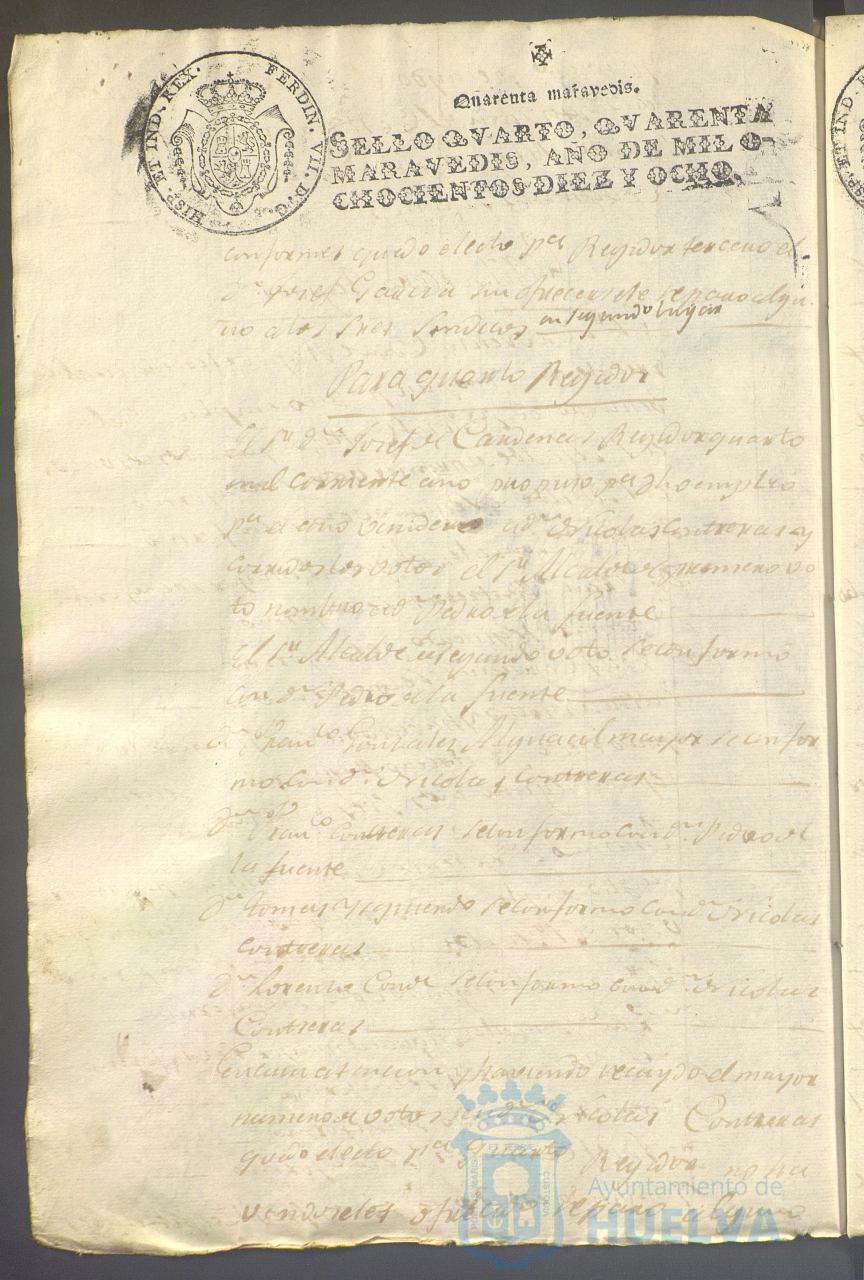 HISP. ET IND. REX. FERDIN. VII. D. G.
Quarenta maravedis.
SELLO QVARTO, QVARENTA
MARAVEDIS, AÑO DE MIL O
CHOCIENTOS DIEZ Y OCHO.
conformes quedo electo pa Regidor tercero el
Dn Josef Garcia sin ofrecersele reparo algu
no a los Sres Sindicos en segundo lugar
Para quarto Regidor
El Sr Dn Josef de Cardenas Regidor quarto
en el corriente año propuso pa dho empleo
pa el año venidero a Dn Nicolas Contreras y
corridos los votos el Sr Alcalde de primero vo
to nombro a Dn Pedro de la fuente
El Sr Alcalde de segundo voto se conformo
con Dn Pedro de la fuente
Dn Franco Gonzales Alguacil mayor se confor
mo con Dn Nicolas Contreras
Dn Franco Contreras se conformo con Dn Pedro de
la fuente
Dn tomas Yzquierdo se conformo con Dn Nicolas
Contreras
Dn Lorenzo Conde se conformo con Dn Nicolas
Contreras
En cuia atencion y haviendo recaydo el mayor
numero de votos en Dn Nicolas Contreras
quedo electo pa quarto Regidor no ha
viendoseles ofrecido reparo alguno
Ayuntamiento de
HUELVA